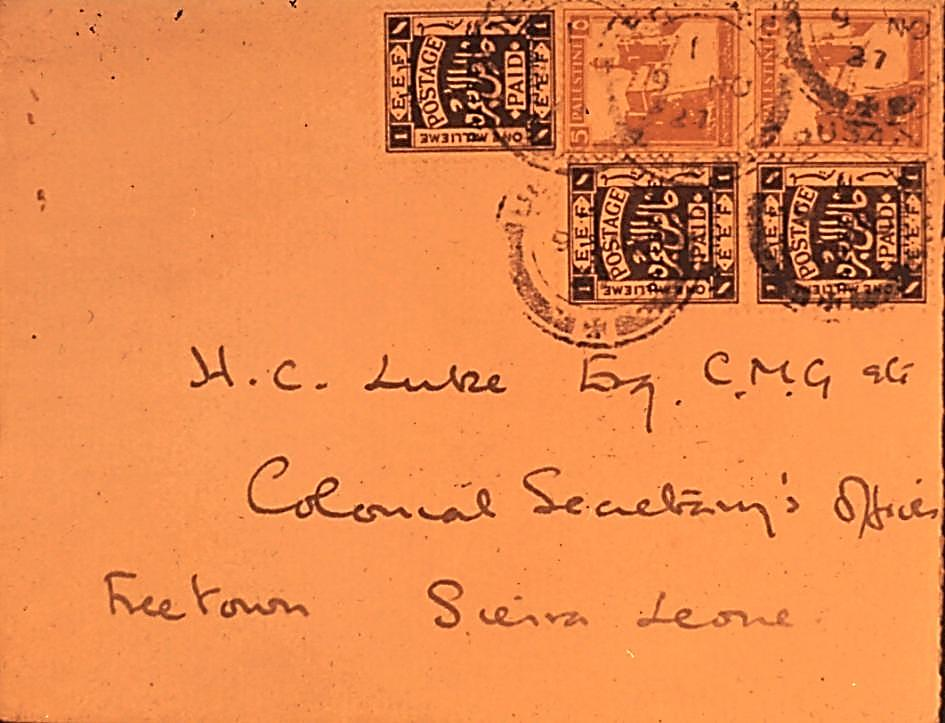 POSTAGE PAID
E.E.F
ONE MILLIEME
5 PALESTINE
PALESTINE
9 NO
27
POSTAGE PAID
E.E.F
ONE MILLIEME
POSTAGE PAID
E.E.F
ONE MILLIEME
H. C. Luke Esq. C.M.G etc
Colonial Secretary's Offices
Freetown Sierra Leone.